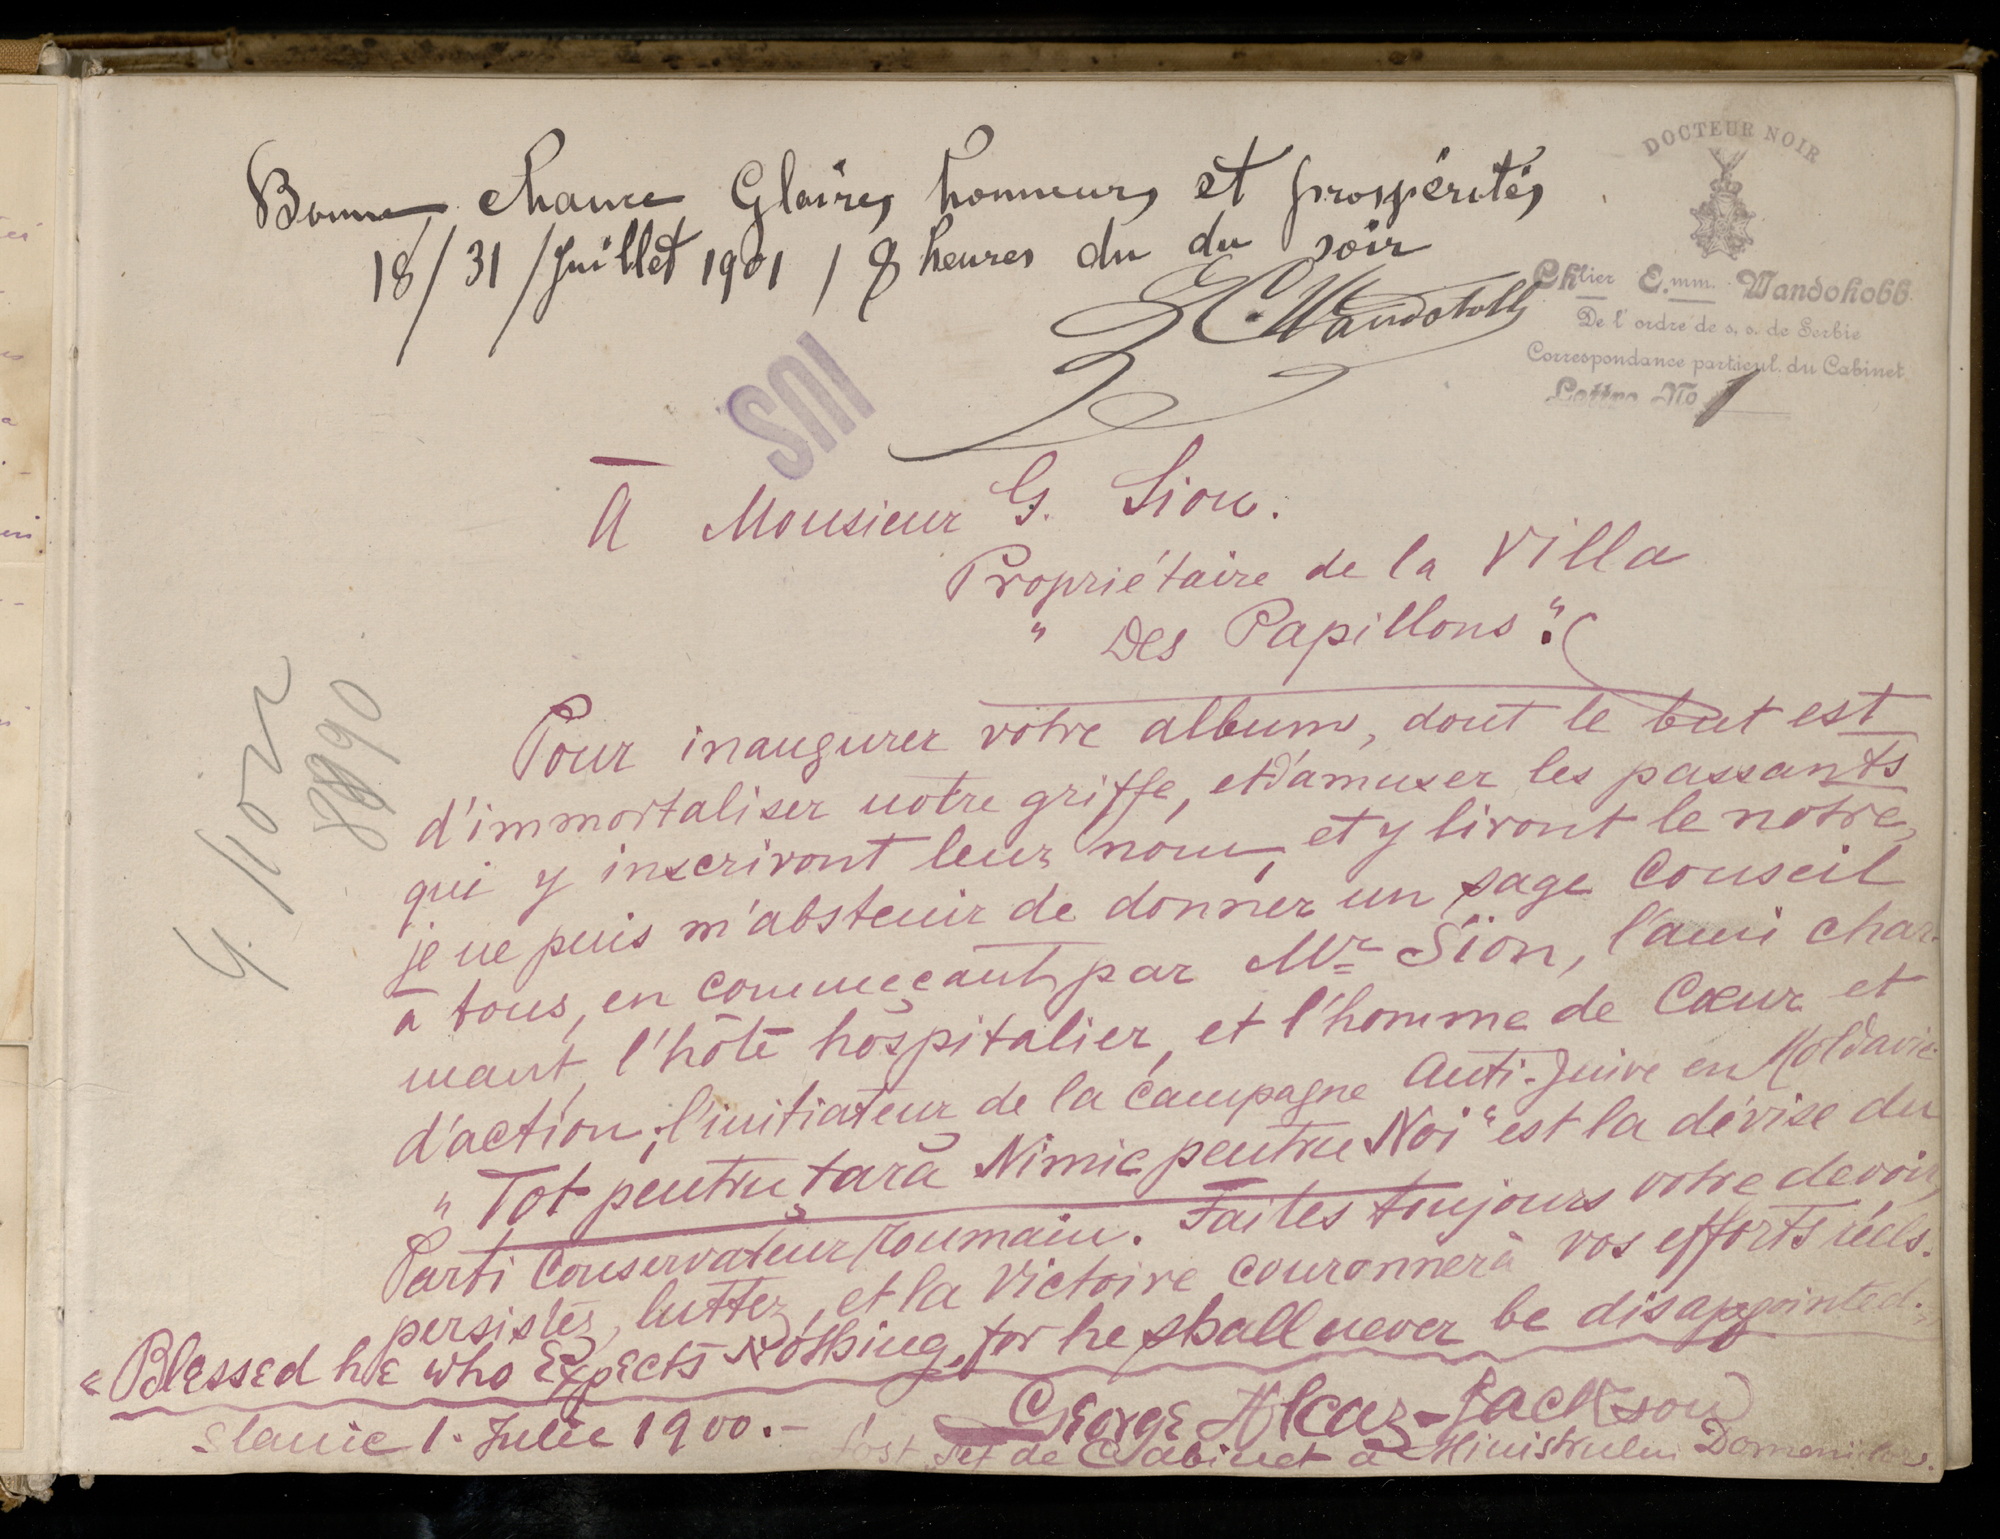 Bonne chance Gloires, honneurs et prospérités
18/31/Juillet 1901 / 8 heures du du soir
DOCTEUR NOIR
Chlier E.mm. Wandohobb
De l'ordre de s. s. de Serbie
Correspondance particul. du Cabinet
Lettre No 1
SUS
À Monsieur G. Sion.
Propriétaire de la Villa
" Des Papillons".
Pour inaugurer votre album, dont le but est
d'immortaliser notre griffe, et d'amuser les passants
qui y inscriront leur nom, et y liront le notre,
je ne puis m'abstenir de donner un sage conseil
à tous, en commeçant par Mr Sïon, l'ami char-
mant, l'hôte hospitalier, et l'homme de Cœur et
d'action, l'initiateur de la campagne Anti-Juive en Moldavie
" Tot pentru țară Nimic pentru Noi" est la dévise du
Parti Conservateur Roumain. Faites toujours votre devoir,
persistez, luttez, et la Victoire couronnerà vos efforts réels.
"Blessed he who Expects Nothing, for he shall never be disappointed."
Slanic 1. Julie 1900.-
George Alcaz-Jackson
fost șef de Cabinet a Ministrului Domeniilor.
G. Sion